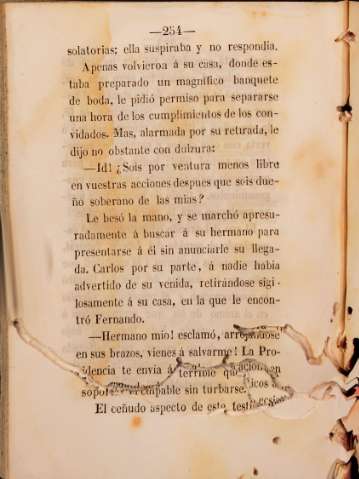 —254—
solatorias; ella suspiraba y no respondia.
Apenas volvieroa á su casa, donde es-
taba preparado un magnífico banquete
de boda, le pidió permiso para separarse
una hora de los cumplimientos de los con-
vidados. Mas, alarmada por su retirada, le
dijo no obstante con dulzura:
—Id! ¿Sois por ventura menos libre
en vuestras acciones despues que sois due-
ño soberano de las mias?
Le besó la mano, y se marchó apresu-
radamente á buscar á su hermano para
presentarse á él sin anunciarle su llega-
da. Carlos por su parte, á nadie habia
advertido de su venida, retirándose sigi-
losamente á su casa, en la que le encon-
tró Fernando.
—Hermano mio! esclamó, arrojándose
en sus brazos, vienes á salvarme! La Pro-
videncia te envia á
terrible que
sin turbarse.
El ceñudo aspecto de este